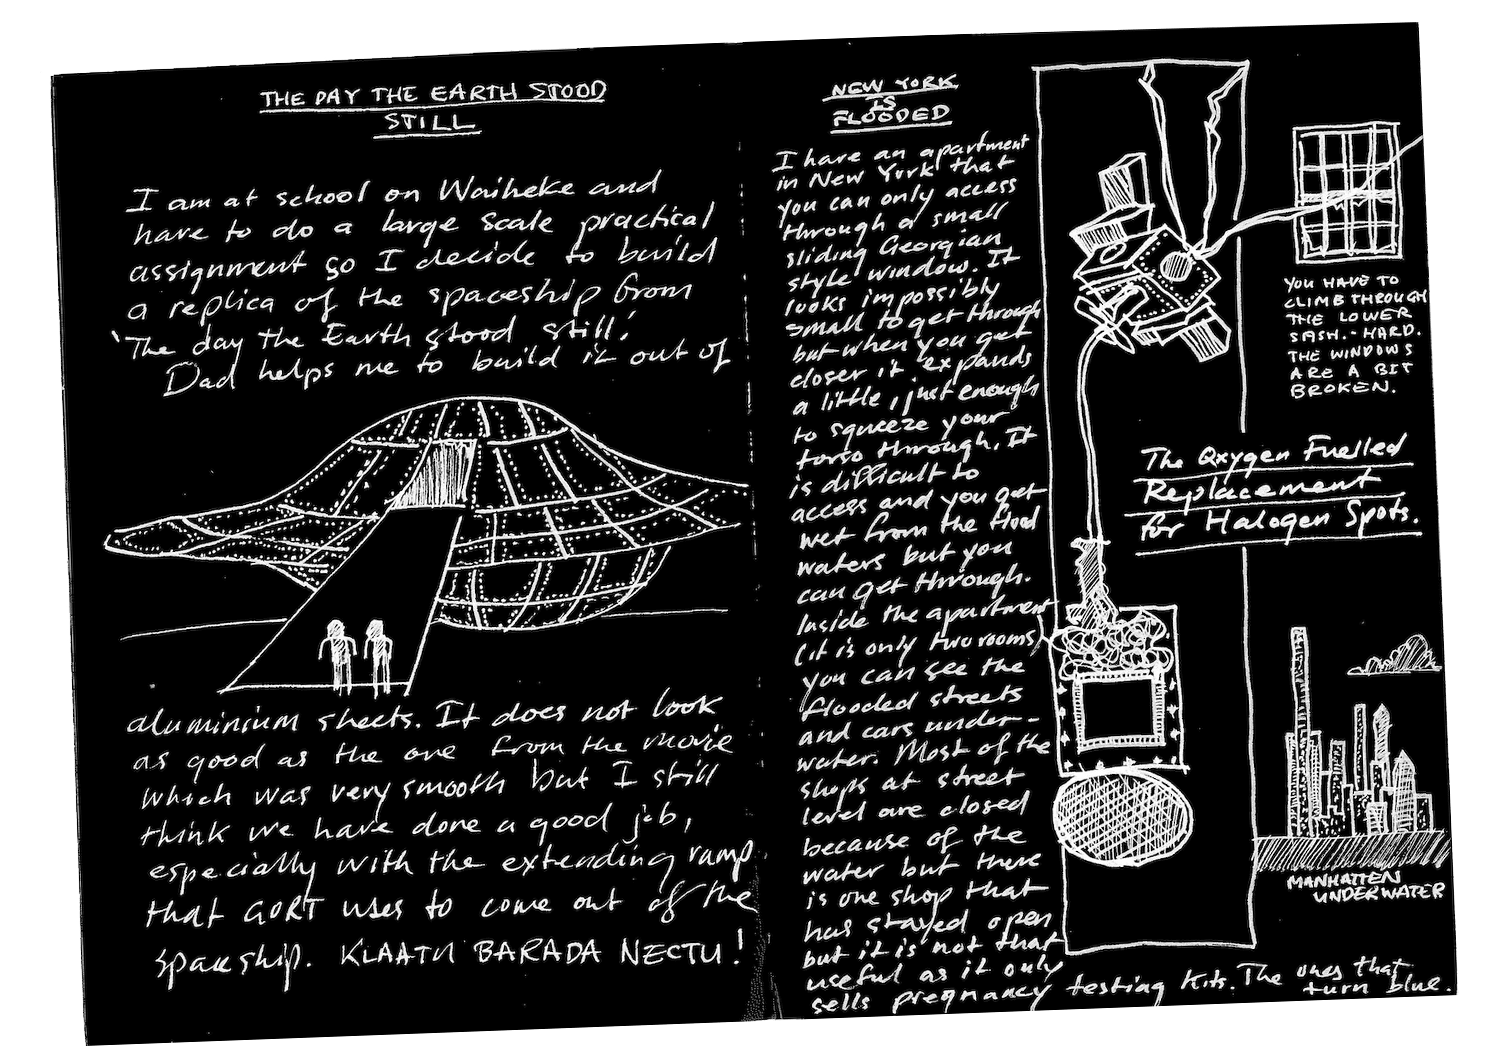 THE DAY THE EARTH STOOD
STILL
I am at school on Waiheke and
have to do a large scale practical
assignment so I decide to build
a replica of the spaceship from
'The day the Earth stood still.'
Dad helps me to build it out of
aluminium sheets. It does not look
as good as the one from the movie
which was very smooth but I still
think we have done a good job,
especially with the extending ramp
that GORT uses to come out of the
spaceship. KLAATU BARADA NECTU!
NEW YORK
IS
FLOODED
I have an apartment
in New York that
you can only access
through a small
sliding Georgian
style window. It
looks impossibly
small to get through
but when you get
closer it expands
a little, just enough
to squeeze your
torso through. It
is difficult to
access and you get
wet from the flood
waters but you
can get through.
Inside the apartment
(it is only two rooms)
you can see the
flooded streets
and cars under-
water. Most of the
shops at street
level are closed
because of the
water but there
is one shop that
has stayed open
but it is not that
useful as it only
sells pregnancy testing kits. The ones that
turn blue.
YOU HAVE TO
CLIMB THROUGH
THE LOWER
SASH.. HARD.
THE WINDOWS
ARE A BIT
BROKEN.
The Oxygen Fuelled
Replacement
for Halogen Spots.
MANHATTEN
UNDERWATER